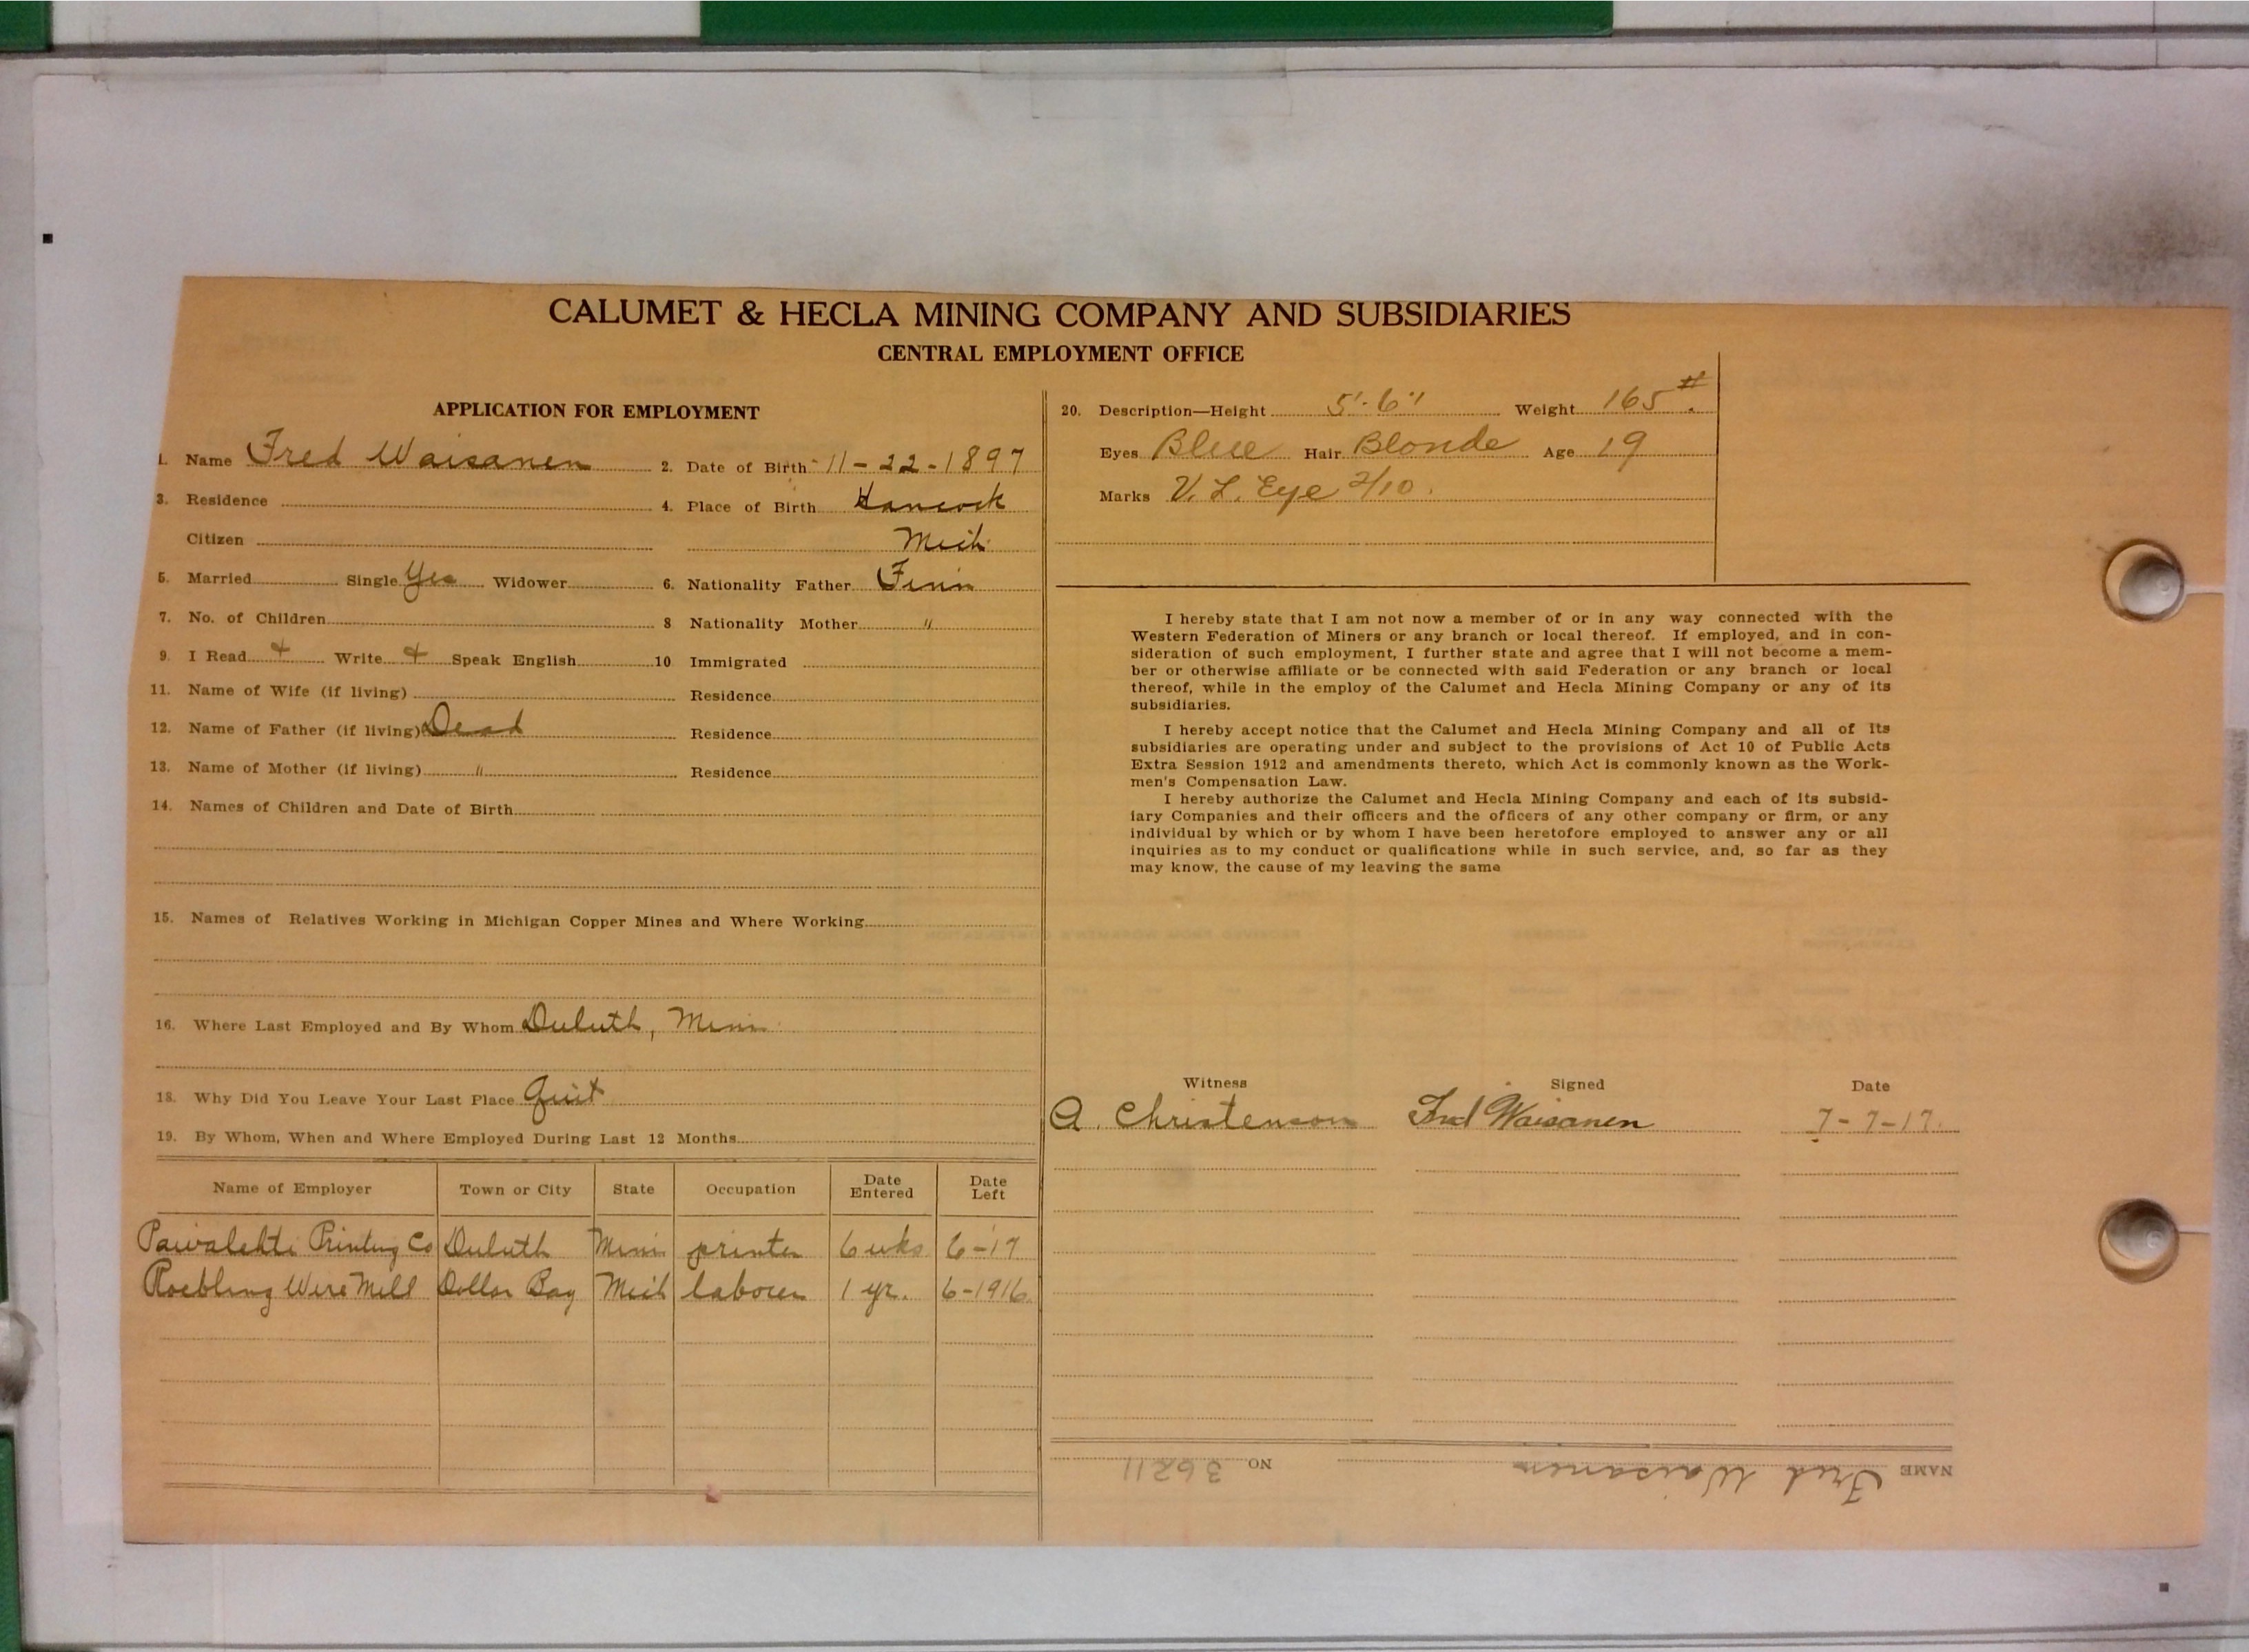 CALUMET & HECLA MINING COMPANY AND SUBSIDIARIES
CENTRAL EMPLOYMENT OFFICE
APPLICATION FOR EMPLOYMENT
1. Name Fred Waisanen 2. Date of Birth 11-22-1897
3. Residence 4. Place of Birth Hancock
Citizen Mich
5. Married Single Yes Widower 6. Nationality Father Finn
7. No. of Children 8 Nationality Mother "
9. I Read + Write + Speak English 10 Immigrated
11. Name of Wife (if living) Residence
12. Name of Father (if living) Dead Residence
13. Name of Mother (if living) " Residence
14. Names of Children and Date of Birth
15. Names of Relatives Working in Michigan Copper Mines and Where Working
16. Where Last Employed and By Whom Duluth, Minn
18. Why Did You Leave Your Last Place Quit
19. By Whom, When and Where Employed During Last 12 Months
Name of Employer Town or City State Occupation Date Entered Date Left
Paivalehti Printing Co Duluth Minn printer 6 wks 6-17
Roebling Wire Mill Dollar Bay Mich laborer 1 yr. 6-1916
20. Description—Height 5'-6" Weight 165#.
Eyes Blue Hair Blonde Age 19
Marks V. L. Eye 2/10.
I hereby state that I am not now a member of or in any way connected with the
Western Federation of Miners or any branch or local thereof. If employed, and in con-
sideration of such employment, I further state and agree that I will not become a mem-
ber or otherwise affiliate or be connected with said Federation or any branch or local
thereof, while in the employ of the Calumet and Hecla Mining Company or any of its
subsidiaries.
I hereby accept notice that the Calumet and Hecla Mining Company and all of its
subsidiaries are operating under and subject to the provisions of Act 10 of Public Acts
Extra Session 1912 and amendments thereto, which Act is commonly known as the Work-
men's Compensation Law.
I hereby authorize the Calumet and Hecla Mining Company and each of its subsid-
iary Companies and their officers and the officers of any other company or firm, or any
individual by which or by whom I have been heretofore employed to answer any or all
inquiries as to my conduct or qualifications while in such service, and, so far as they
may know, the cause of my leaving the same
Witness Signed Date
A. Christenson Fred Waisanen 7-7-17.
NAME Fred Waisanen NO 36211